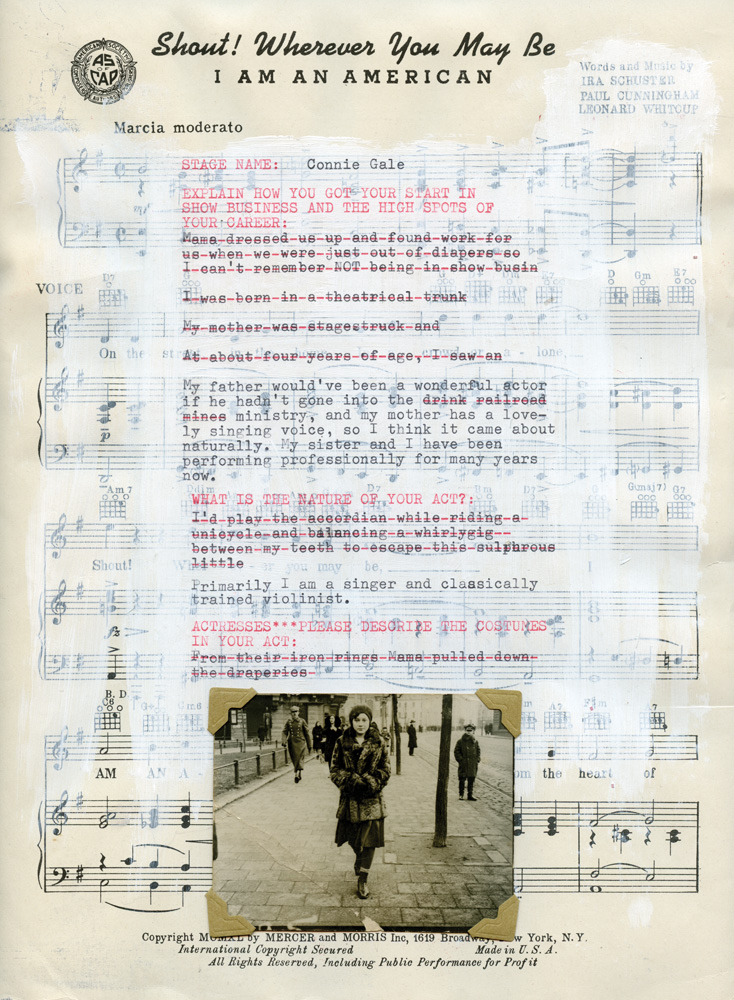 Shout! Wherever You May Be
I AM AN AMERICAN
AMERICAN SOCIETY
AS
OF
CAP
Words and Music by
IRA SCHUSTER
PAUL CUNNINGHAM
LEONARD WHITCUP
Marcia moderato
STAGE NAME: Connie Gale
EXPLAIN HOW YOU GOT YOUR START IN
SHOW BUSINESS AND THE HIGH SPOTS OF
YOUR CAREER:
Mama dressed us up and found work for
us when we were just out of diapers so
I can't remember NOT being in show busin
VOICE
D7
D Gm E7
I was born in a theatrical trunk
My mother was stagestruck and
At about four years of age, I saw an
On the
a - lone,
My father would've been a wonderful actor
if he hadn't gone into the drink railroad
mines ministry, and my mother has a love-
ly singing voice, so I think it came about
naturally. My sister and I have been
performing professionally for many years
now.
Am7
D7
D7
G
G(maj7) G7
WHAT IS THE NATURE OF YOUR ACT?:
I'd play the accordian while riding a
unicycle and balancing a whirlygig
between my teeth to escape this sulphrous
little
Shout!
er you may be,
I
Primarily I am a singer and classically
trained violinist.
ACTRESSES***PLEASE DESCRIBE THE COSTUMES
IN YOUR ACT:
From their iron rings Mama pulled down
the draperies
B. D
C6
G+
Cm6
A7
F#m
A7
AM AN A -
om the heart of
Copyright MCMXL by MERCER and MORRIS Inc, 1619 Broadway, New York, N.Y.
International Copyright Secured
Made in U. S. A.
All Rights Reserved, Including Public Performance for Profit